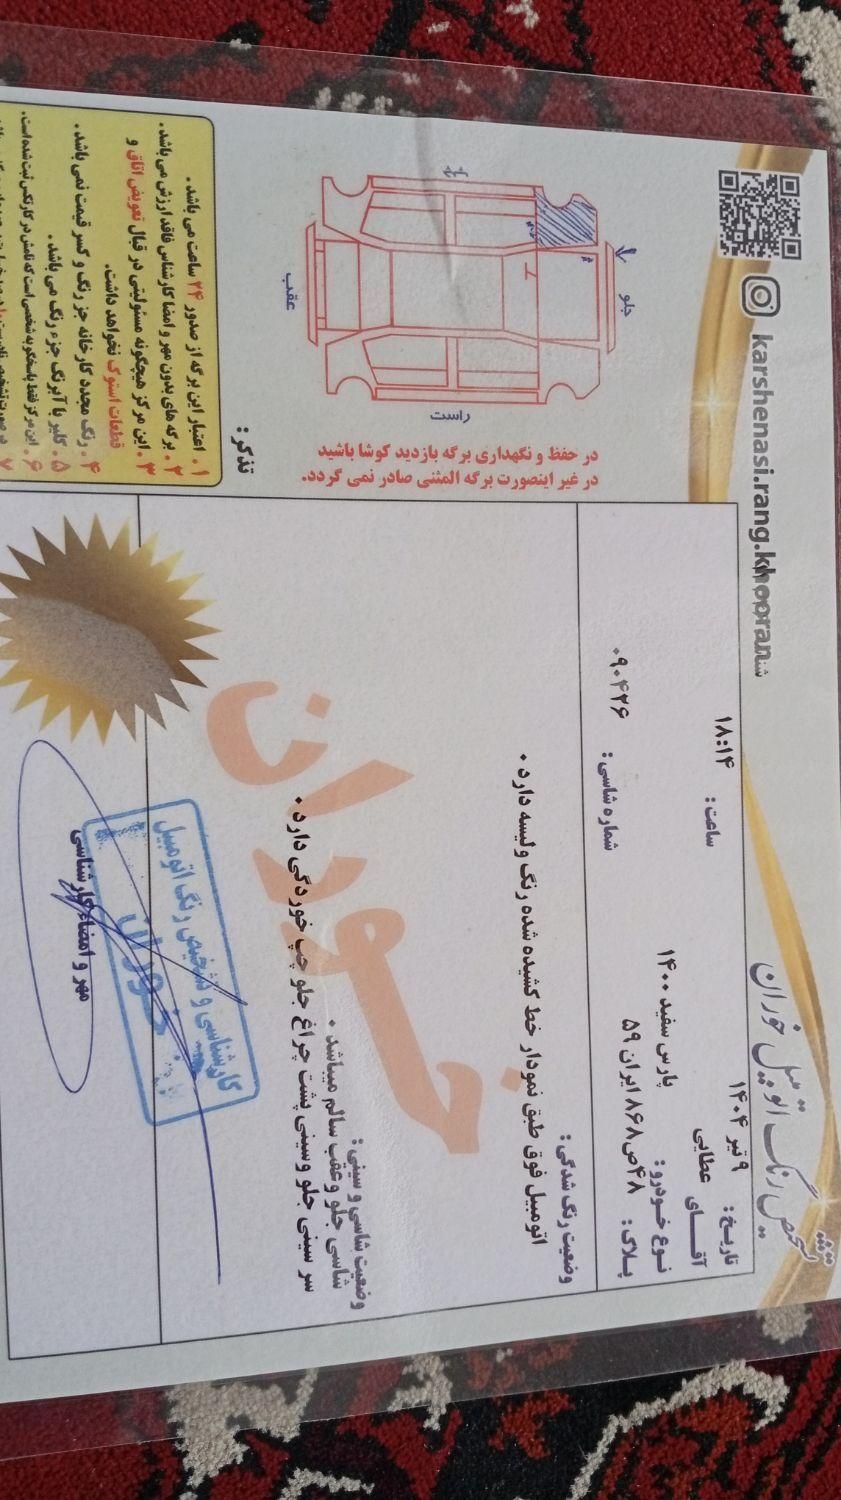 تشخیص رنگ اتومبیل خوران
karshenasi.rang.khooran
تاریخ: ۹ تیر ۱۴۰۴
ساعت: ۱۸:۱۴
آقای عطایی
نوع خودرو: پارس سفید ۱۴۰۰
پلاک: ۴۸ص۸۶۸ ایران ۵۹
شماره شاسی: ۰۹۰۴۲۶
وضعیت رنگ شدگی:
اتومبیل فوق طبق نمودار خط کشیده شده رنگ ولیسه دارد .
وضعیت شاسی و سینی:
شاسی جلو وعقب سالم میباشد .
سر سینی جلو وسینی پشت چراغ جلو چپ خوردگی دارد .
خوران
مهر و امضاء کارشناسی
کارشناسی و تشخیص رنگ اتومبیل
خوران
جلو
عقب
راست
در حفظ و نگهداری برگه بازدید کوشا باشید
در غیر اینصورت برگه المثنی صادر نمی گردد.
تذکر:
۱. اعتبار این برگه از صدور ۲۴ ساعت می باشد.
۲. برگه های بدون مهر و امضا کارشناس فاقد ارزش می باشد.
۳. این مرکز هیچگونه مسئولیتی در قبال تعویض اتاق و
قطعات استوک نخواهد داشت.
۴. رنگ مجدد کارخانه جز رنگ و کسر قیمت نمی باشد.
۵. کلیر یا آبرنگ جزء رنگ می باشد.
۶. این مرکز فقط پاسخگو به شخصی است که نامش در کارتکس ثبت شده است.
۷